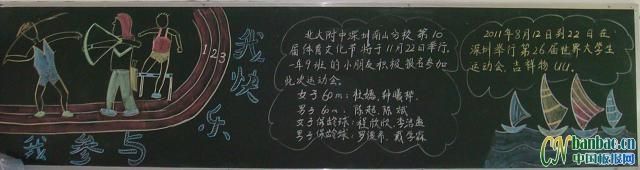 我参与
我快乐
1 2 3
北大附中深圳南山分校第10
届体育文化节将于11月22日举行,
一年9班的小朋友积极报名参加
此次运动会。
女子60m:杜嫣,钟曦
男子60m:陈超,陈斌
女子保龄球:程欣欣,李浩
男子保龄球:罗俊希,戴学霖
2011年8月12日到22日在
深圳举行第26届世界大学生
运动会,吉祥物UU。
CN banbao.cn
中国板报网